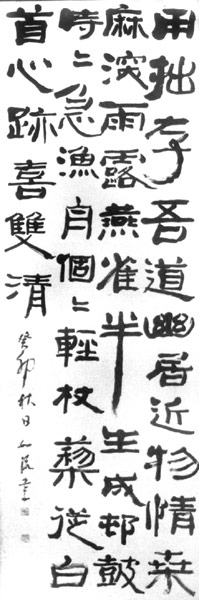 用拙存吾道幽居近物情桒
麻深雨露燕雀半生成邨鼓
時〻急漁舟個〻輕杖藜從白
首心跡喜雙清
癸卯秋日